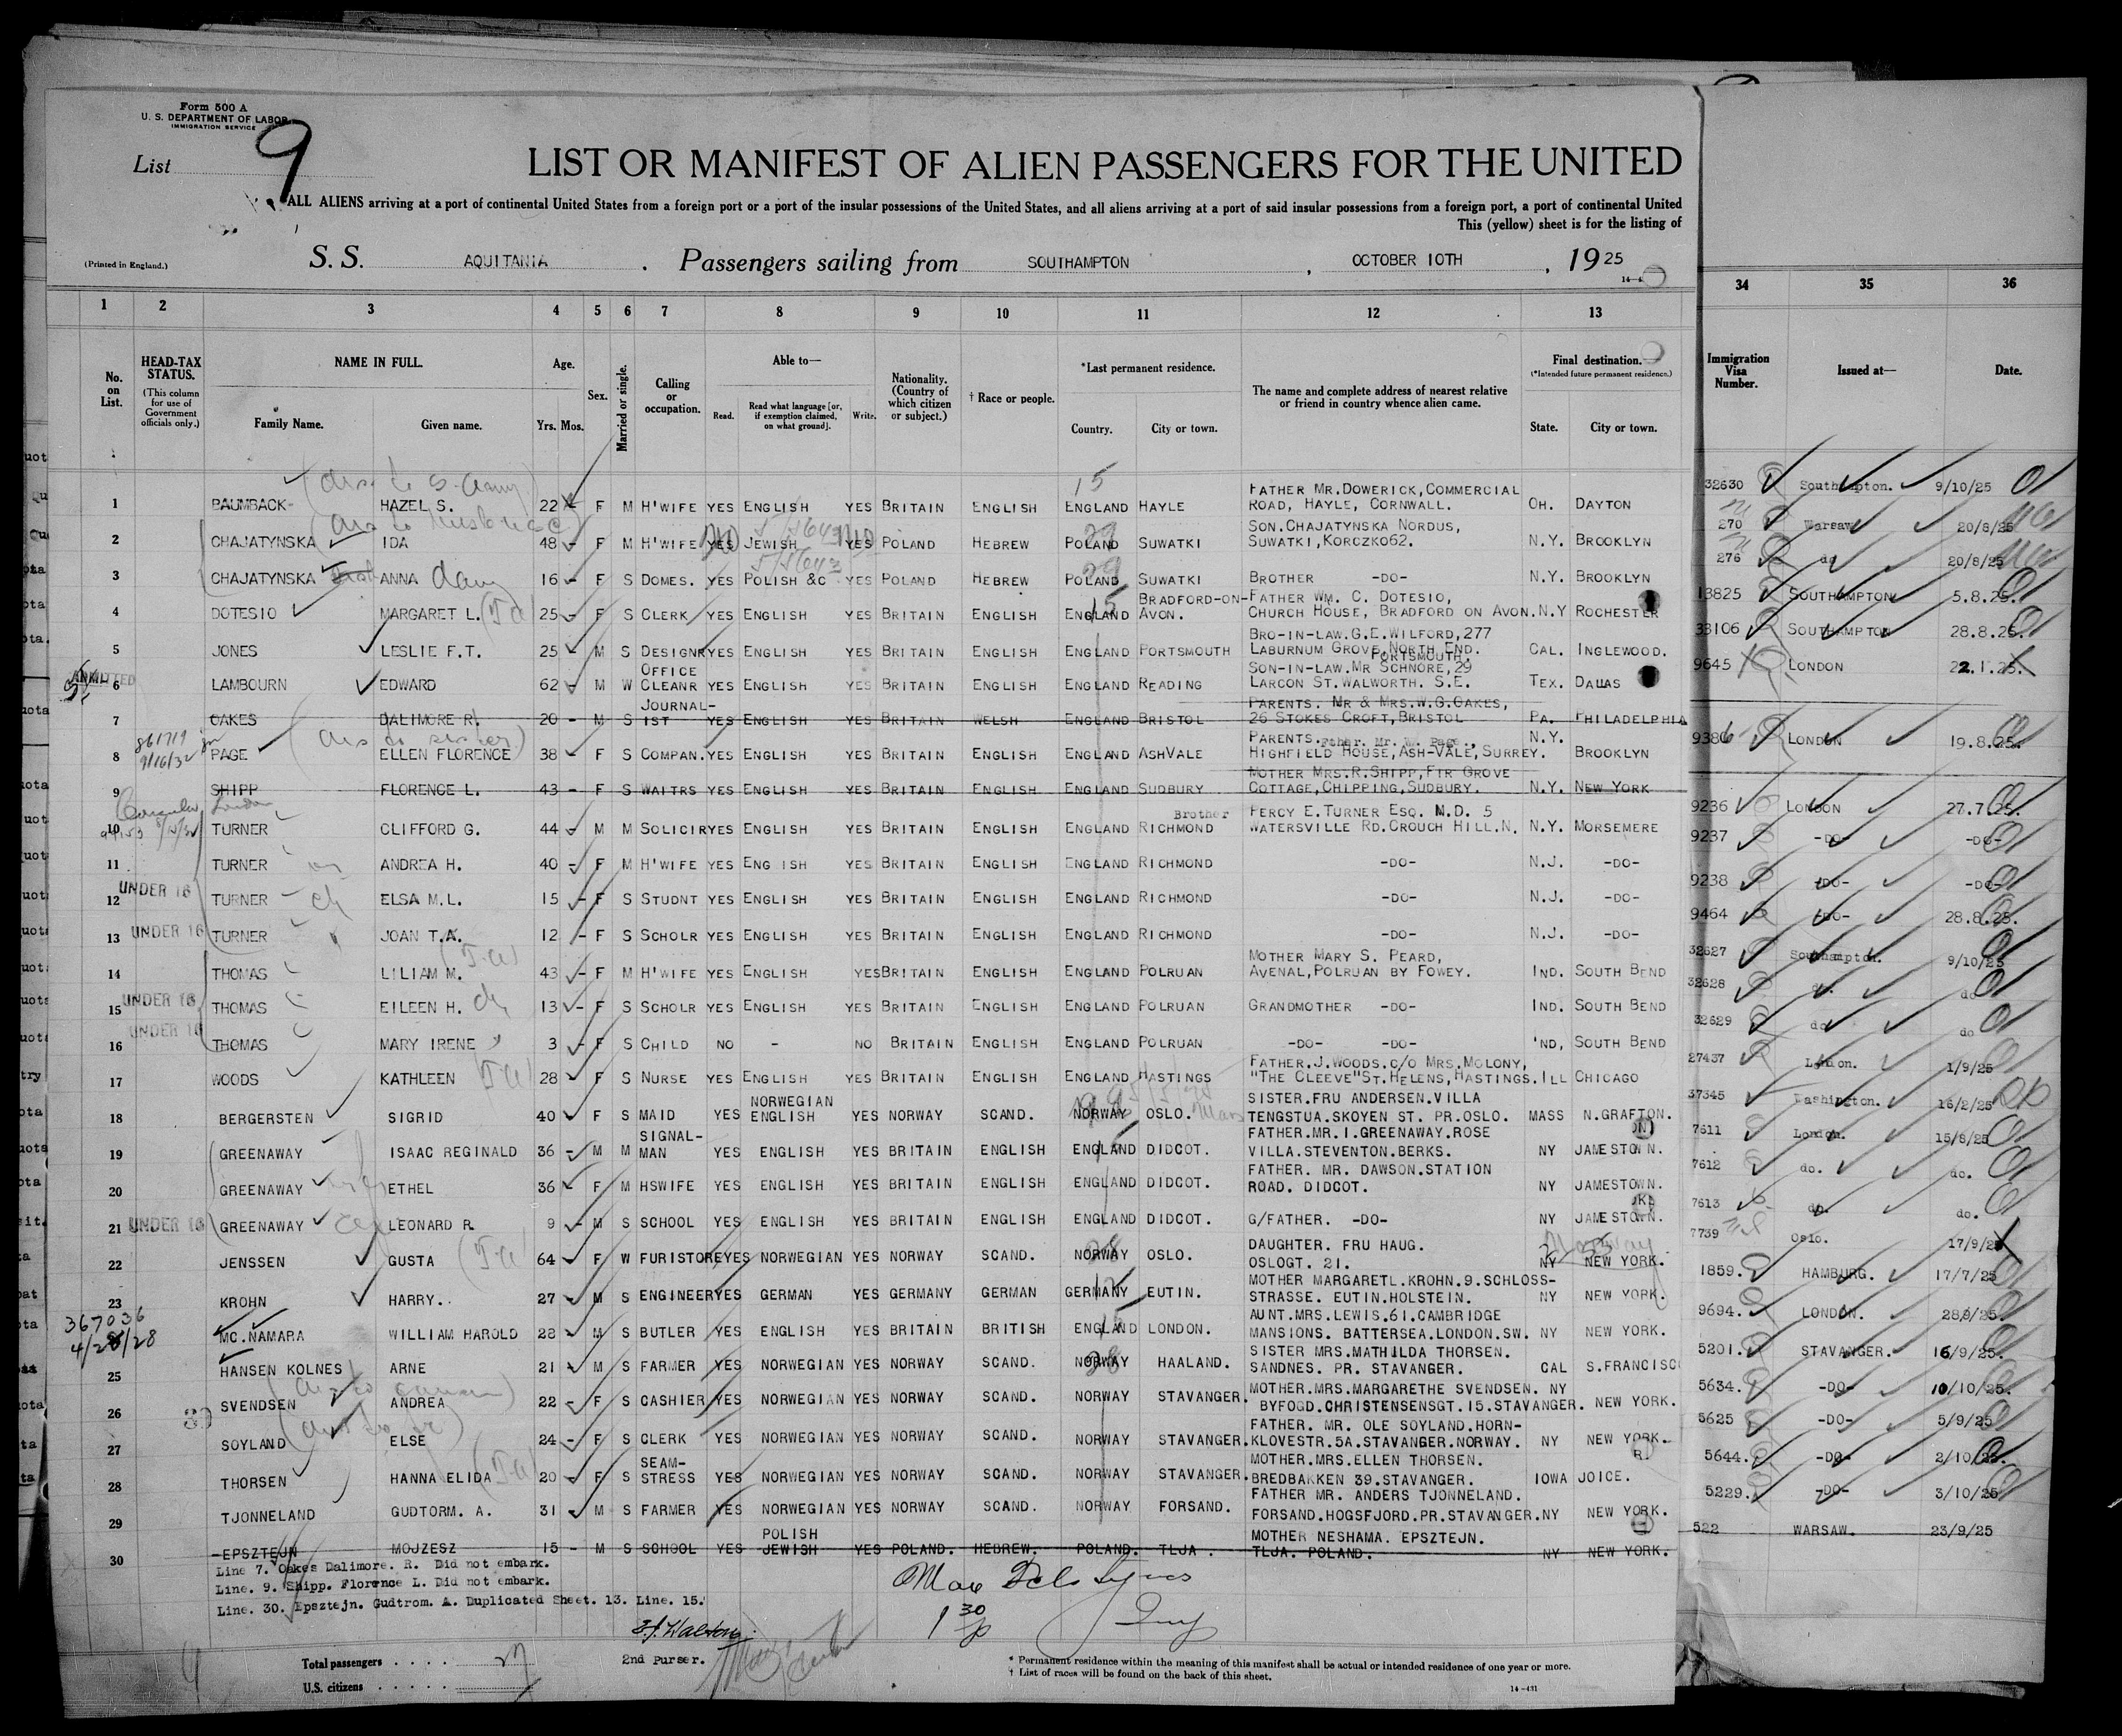 Form 500 A
U. S. DEPARTMENT OF LABOR
IMMIGRATION SERVICE
List 9
LIST OR MANIFEST OF ALIEN PASSENGERS FOR THE UNITED
ALL ALIENS arriving at a port of continental United States from a foreign port or a port of the insular possessions of the United States, and all aliens arriving at a port of said insular possessions from a foreign port, a port of continental United
This (yellow) sheet is for the listing of
(Printed in England.)
S. S. AQUITANIA . Passengers sailing from SOUTHAMPTON , OCTOBER 10TH , 19 25
1 2 3 4 5 6 7 8 9 10 11 12 13 34 35 36
No. on List.
HEAD-TAX STATUS.
(This column for use of Government officials only.)
NAME IN FULL.
Family Name. Given name.
Age.
Yrs. Mos.
Sex.
Married or single.
Calling or occupation.
Able to—
Read. Read what language [or, if exemption claimed, on what ground]. Write.
Nationality. (Country of which citizen or subject.)
† Race or people.
*Last permanent residence.
Country. City or town.
The name and complete address of nearest relative or friend in country whence alien came.
Final destination.
(*Intended future permanent residence.)
State. City or town.
Immigration Visa Number.
Issued at—
Date.
1 BAUMBACK HAZEL S. 22 F M H'WIFE YES ENGLISH YES BRITAIN ENGLISH ENGLAND HAYLE FATHER MR.DOWERICK,COMMERCIAL ROAD, HAYLE, CORNWALL. OH. DAYTON 32630 Southampton. 9/10/25
2 CHAJATYNSKA IDA 48 F M H'WIFE YES JEWISH YES POLAND HEBREW POLAND SUWATKI SON.CHAJATYNSKA NORDUS, SUWATKI,KORCZKO62. N.Y. BROOKLYN 270 Warsaw 20/8/25
3 CHAJATYNSKA ANNA 16 - F S DOMES. YES POLISH &C YES POLAND HEBREW POLAND SUWATKI BROTHER -DO- N.Y. BROOKLYN 276 do 20/8/25
4 DOTESIO MARGARET L. 25 - F S CLERK YES ENGLISH YES BRITAIN ENGLISH ENGLAND BRADFORD-ON-AVON. FATHER WM. C. DOTESIO, CHURCH HOUSE, BRADFORD ON AVON. N.Y ROCHESTER 13825 SOUTHAMPTON 5.8.25.
5 JONES LESLIE F.T. 25 M S DESIGNR YES ENGLISH YES BRITAIN ENGLISH ENGLAND PORTSMOUTH BRO-IN-LAW.G.E.WILFORD,277 LABURNUM GROVE,NORTH END. PORTSMOUTH. CAL. INGLEWOOD. 33106 SOUTHAMPTON 28.8.25.
ADMITTED
6 LAMBOURN EDWARD 62 M W OFFICE CLEANR YES ENGLISH YES BRITAIN ENGLISH ENGLAND READING SON-IN-LAW.MR SCHNORE,29 LARCON ST.WALWORTH. S.E. TEX. DALLAS 9645 LONDON 22.1.25.
7 OAKES DALIMORE R. 20 - M S JOURNAL-IST YES ENGLISH YES BRITAIN WELSH ENGLAND BRISTOL PARENTS. MR & MRS.W.G.OAKES, 26 STOKES CROFT,BRISTOL PA. PHILADELPHIA
861719
9/16/32
8 PAGE ELLEN FLORENCE 38 F S COMPAN. YES ENGLISH YES BRITAIN ENGLISH ENGLAND ASHVALE PARENTS. Father. Mr. W. Page., HIGHFIELD HOUSE,ASH-VALE,SURREY. N.Y. BROOKLYN 9386 LONDON 19.8.25.
9 SHIPP FLORENCE L. 43 - F S WAITRS YES ENGLISH YES BRITAIN ENGLISH ENGLAND SUDBURY MOTHER MRS.R.SHIPP,FIR GROVE COTTAGE,CHIPPING,SUDBURY. N.Y. NEW YORK
10 TURNER CLIFFORD G. 44 - M M SOLICIR YES ENGLISH YES BRITAIN ENGLISH ENGLAND RICHMOND Brother PERCY E.TURNER ESQ. N.D. 5 WATERSVILLE RD.CROUCH HILL.N. N.Y. MORSEMERE 9236 LONDON 27.7.25.
11 TURNER ANDREA H. 40 - F M H'WIFE YES ENG ISH YES BRITAIN ENGLISH ENGLAND RICHMOND -DO- N.J. -DO- 9237 -DO- -DO-
UNDER 16
12 TURNER ELSA M.L. 15 - F S STUDNT YES ENGLISH YES BRITAIN ENGLISH ENGLAND RICHMOND -DO- N.J. -DO- 9238 -DO- -DO-
UNDER 16
13 TURNER JOAN T.A. 12 - F S SCHOLR YES ENGLISH YES BRITAIN ENGLISH ENGLAND RICHMOND -DO- N.J. -DO- 9464 -DO- 28.8.25.
14 THOMAS LILIAM M. 43 - F M H'WIFE YES ENGLISH YES BRITAIN ENGLISH ENGLAND POLRUAN MOTHER MARY S. PEARD, AVENAL,POLRUAN BY FOWEY. IND. SOUTH BEND 32627 Southampton. 9/10/25
UNDER 16
15 THOMAS EILEEN H. 13 - F S SCHOLR YES ENGLISH YES BRITAIN ENGLISH ENGLAND POLRUAN GRANDMOTHER -DO- IND. SOUTH BEND 32628 do. do
UNDER 16
16 THOMAS MARY IRENE 3 - F S CHILD NO - NO BRITAIN ENGLISH ENGLAND POLRUAN -DO- -DO- 'ND, SOUTH BEND 32629 do do
17 WOODS KATHLEEN 28 F S NURSE YES ENGLISH YES BRITAIN ENGLISH ENGLAND HASTINGS FATHER.J.WOODS.C/O MRS.MOLONY, "THE CLEEVE"ST.HELENS,HASTINGS. ILL CHICAGO 27437 London. 1/9/25
18 BERGERSTEN SIGRID 40 F S MAID YES NORWEGIAN ENGLISH YES NORWAY SCAND. NORWAY OSLO. SISTER.FRU ANDERSEN.VILLA TENGSTUA.SKOYEN ST. PR.OSLO. MASS N.GRAFTON. 37345 Washington. 16/2/25
19 GREENAWAY ISAAC REGINALD 36 - M M SIGNAL-MAN YES ENGLISH YES BRITAIN ENGLISH ENGLAND DIDCOT. FATHER.MR.I.GREENAWAY.ROSE VILLA.STEVENTON.BERKS. NY JAMESTOWN. 7611 London. 15/8/25
20 GREENAWAY ETHEL 36 F M HSWIFE YES ENGLISH YES BRITAIN ENGLISH ENGLAND DIDCOT. FATHER. MR. DAWSON.STATION ROAD. DIDCOT. NY JAMESTOWN. 7612 do. do.
UNDER 16
21 GREENAWAY LEONARD R. 9 - M S SCHOOL YES ENGLISH YES BRITAIN ENGLISH ENGLAND DIDCOT. G/FATHER. -DO- NY JAMESTOWN. 7613 do. do.
22 JENSSEN GUSTA 64 F W FURISTORE YES NORWEGIAN YES NORWAY SCAND. NORWAY OSLO. DAUGHTER. FRU HAUG. OSLOGT. 21. NY NEW YORK. 7739 Oslo. 17/9/25
23 KROHN HARRY.. 27 M S ENGINEER YES GERMAN YES GERMANY GERMAN GERMANY EUTIN. MOTHER MARGARETL.KROHN.9.SCHLOSS-STRASSE. EUTIN.HOLSTEIN. NY NEW YORK. 1859. HAMBURG. 17/7/25
367036
4/28/28
MC.NAMARA WILLIAM HAROLD 28 M S BUTLER YES ENGLISH YES BRITAIN BRITISH ENGLAND LONDON. AUNT.MRS.LEWIS.61.CAMBRIDGE MANSIONS. BATTERSEA.LONDON.SW. NY NEW YORK. 9694. LONDON. 28/9/25.
25 HANSEN KOLNES ARNE 21 M S FARMER YES NORWEGIAN YES NORWAY SCAND. NORWAY HAALAND. SISTER MRS.MATHILDA THORSEN. SANDNES. PR. STAVANGER. CAL S.FRANCISC 5201. STAVANGER. 16/9/25.
26 SVENDSEN ANDREA 22 - F S CASHIER YES NORWEGIAN YES NORWAY SCAND. NORWAY STAVANGER. MOTHER.MRS.MARGARETHE SVENDSEN. BYFOGD.CHRISTENSENSGT.15.STAVANGER. NY NEW YORK. 5634. -DO- 10/10/25.
27 SOYLAND ELSE 24 - F S CLERK YES NORWEGIAN YES NORWAY SCAND. NORWAY STAVANGER. FATHER. MR. OLE SOYLAND.HORN-KLOVESTR.5A.STAVANGER.NORWAY. NY NEW YORK. 5625 -DO- 5/9/25
28 THORSEN HANNA ELIDA 20 F S SEAM-STRESS YES NORWEGIAN YES NORWAY SCAND. NORWAY STAVANGER. MOTHER.MRS.ELLEN THORSEN. BREDBAKKEN 39.STAVANGER. IOWA JOICE. 5644. -DO- 2/10/25.
29 TJONNELAND GUDTORM. A. 31 M S FARMER YES NORWEGIAN YES NORWAY SCAND. NORWAY FORSAND. FATHER MR. ANDERS TJONNELAND. FORSAND.HOGSFJORD.PR.STAVANGER. NY NEW YORK. 5229. -DO- 3/10/25
30 EPSZTEJN MOJZESZ 15 - M S SCHOOL YES POLISH JEWISH YES POLAND. HEBREW. POLAND. TLJA . MOTHER NESHAMA. EPSZTEJN. TLJA. POLAND. NY NEW YORK. 522 WARSAW. 23/9/25
Line 7. Oakes Dalimore. R. Did not embark.
Line. 9. Shipp. Florence L. Did not embark.
Line. 30. Epsztejn. Gudtrom. A. Duplicated Sheet. 13. Line. 15.
2nd Purser.
Total passengers . . . . 27
U.S. citizens . . . . .
* Permanent residence within the meaning of this manifest shall be actual or intended residence of one year or more.
† List of races will be found on the back of this sheet.
14—431